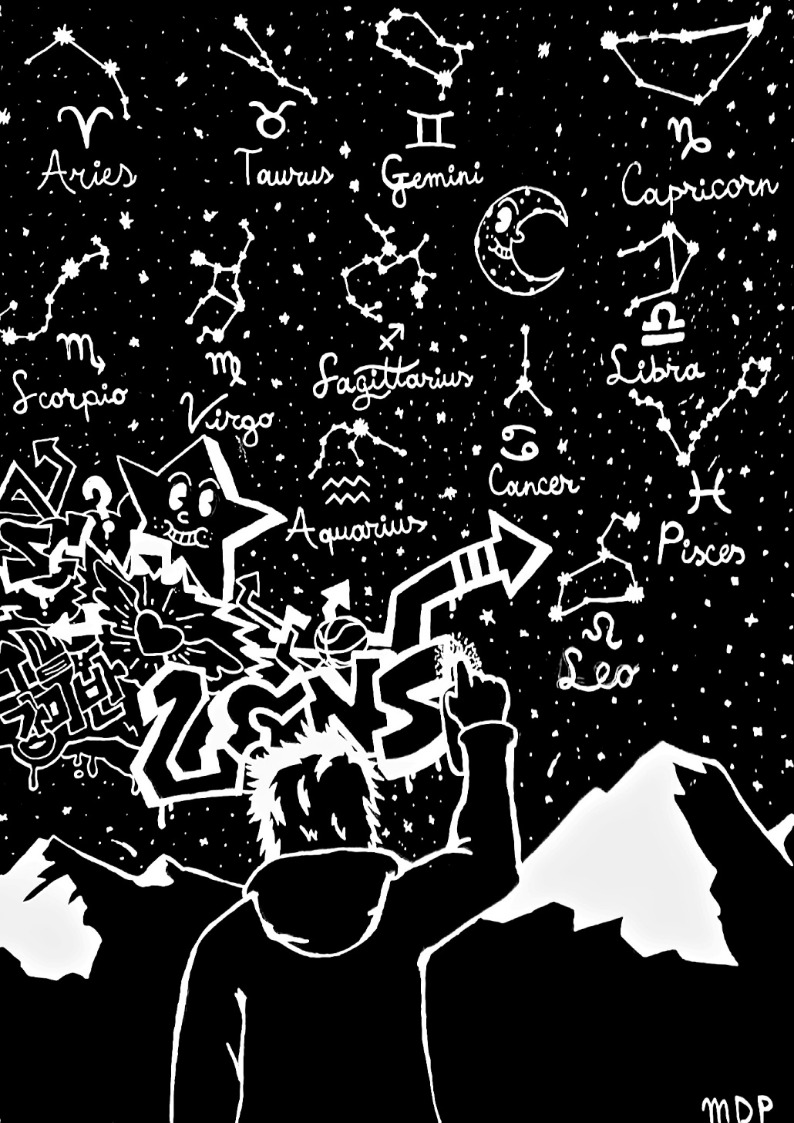 Aries
Taurus
Gemini
Capricorn
Scorpio
Virgo
Sagittarius
Libra
Cancer
Aquarius
Pisces
Leo
?
MDP